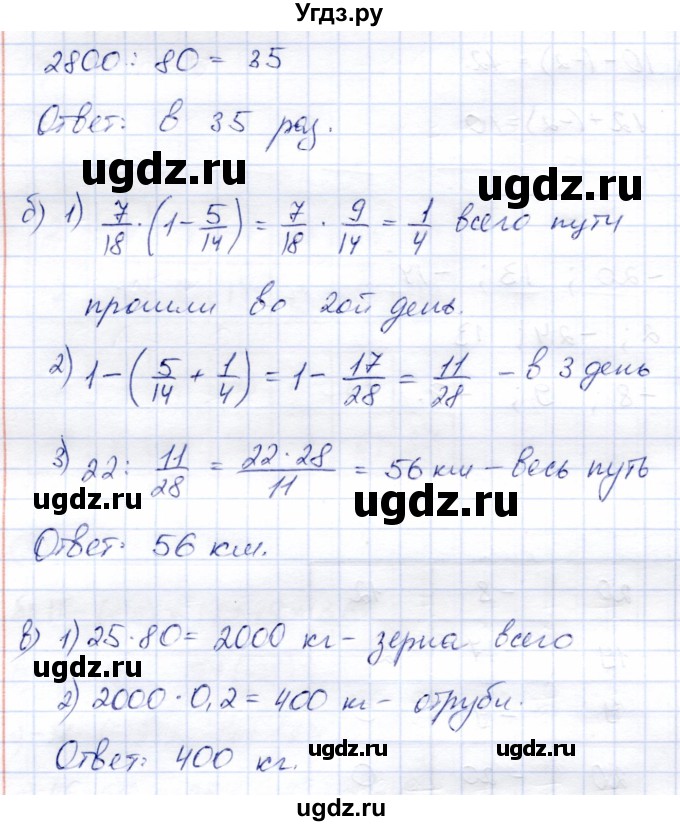 Угдз.ру
2800 : 80 = 35
Ответ: в 35 раз.
ugdz.ru ugdz.ru
б) 1) 7/18 · (1 - 5/14) = 7/18 · 9/14 = 1/4 всего пути
прошли во 2ой день.
ugdz.ru
2) 1 - (5/14 + 1/4) = 1 - 17/28 = 11/28 - в 3 день
3) 22 : 11/28 = 22·28/11 = 56 км - весь путь
ugdz.ru ugdz.ru
Ответ: 56 км.
в) 1) 25·80 = 2000 кг - зерна всего
ugdz.ru
2) 2000·0,2 = 400 кг - отруби.
ugdz.ru ugdz.ru
Ответ: 400 кг.
ugdz.ru